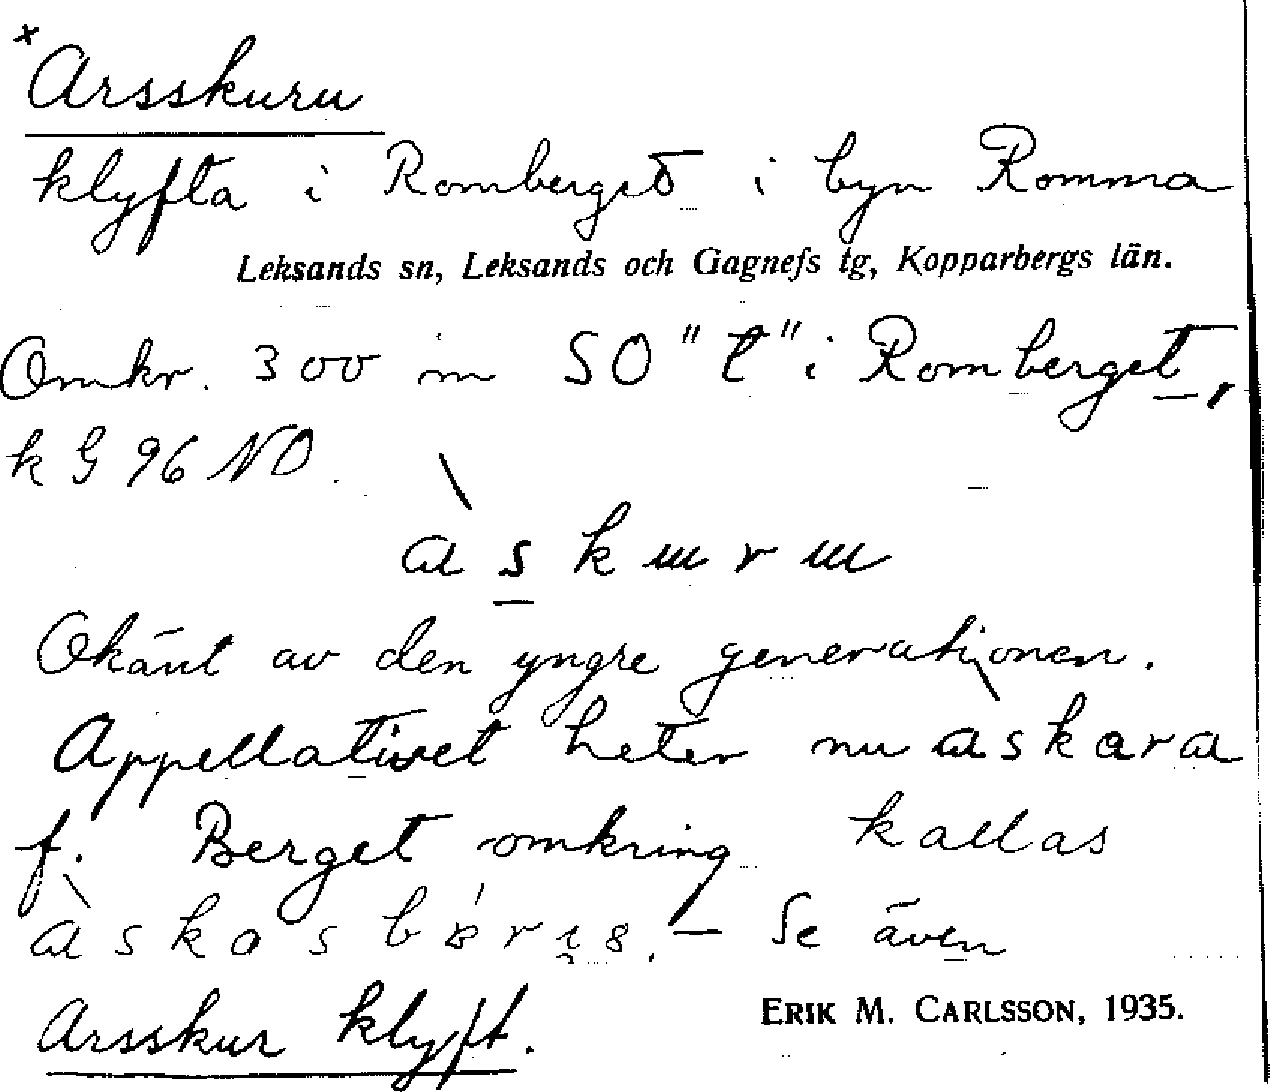 × Arsskuru
klyfta i Romberget i byn Romma
Leksands sn, Leksands och Gagnefs tg, Kopparbergs län.
Omkr. 300 m SO "t" i Romberget,
k G 96 NO.
a s k ɯ r ɯ
Okänt av den yngre generationen.
Appellativet heter nu a s k a r a
f. Berget omkring kallas
– Se även
Arsskur klyft.
ERIK M. CARLSSON, 1935.